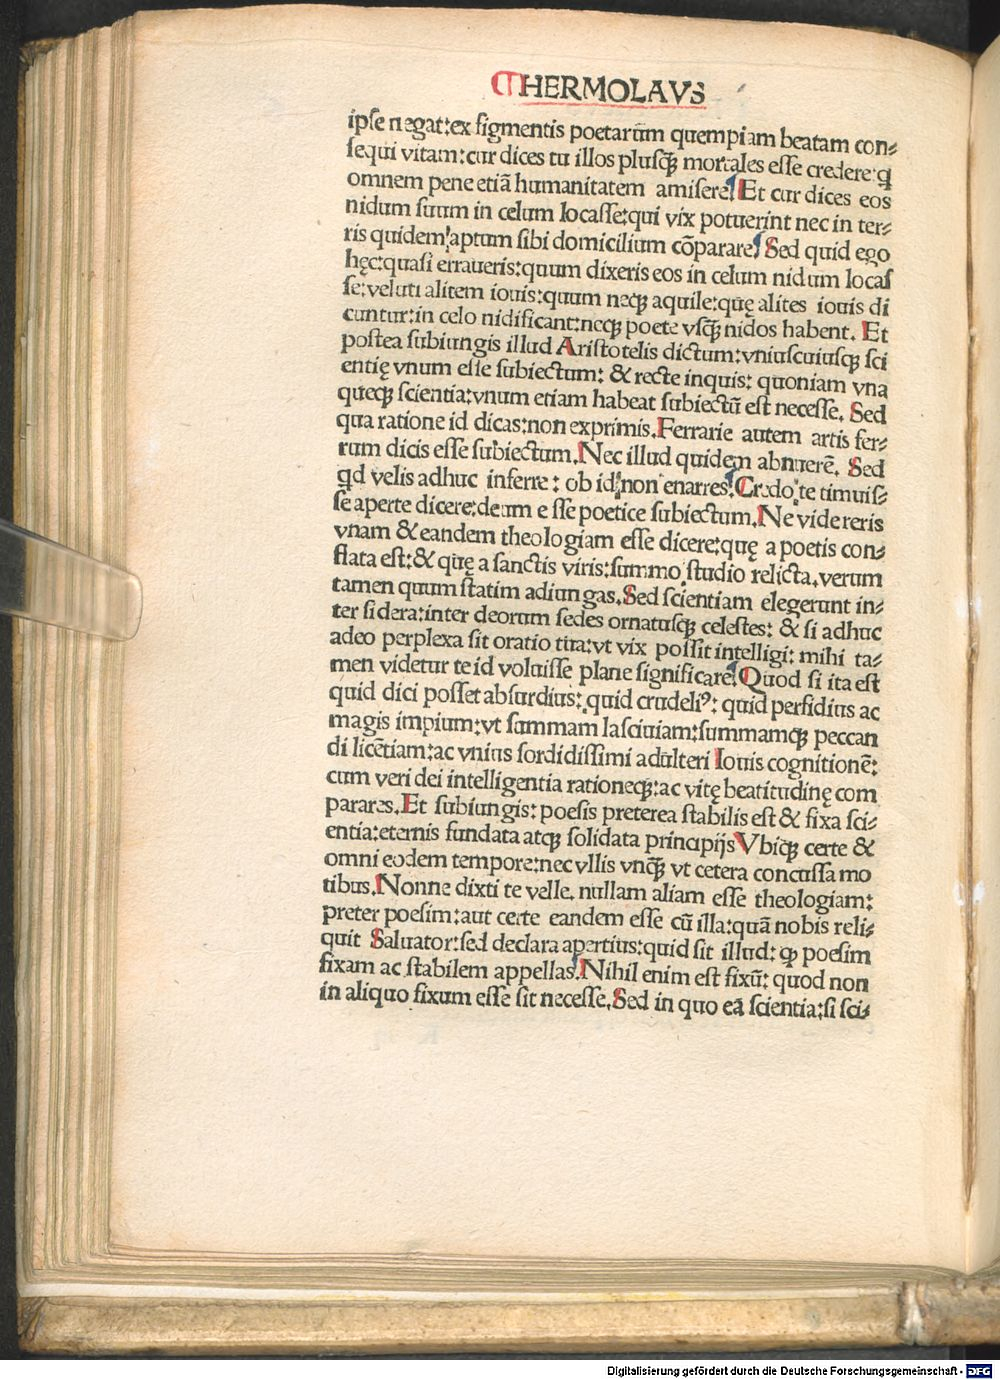 HERMOLAVS
ipſe negat:ex figmentis poetarum quempiam beatam con⸗
ſequi vitam:cur dices tu illos pluſꝗ̃ mortales eſſe credere:ꝗ
omnem pene etiã humanitatem amiſere? Et cur dices eos
nidum ſuum in celum locaſſe:qui vix potuerint nec in ter⸗
ris quidem aptum ſibi domicilium cõparare? Sed quid ego
hęc:quaſi erraueris:quum dixeris eos in celum nidum locaſ
ſe:veluti alitem iouis:quum neqꝫ aquile:quę alites iouis di
cuntur:in celo nidificant:neqꝫ poete vſꝗ̃ nidos habent. Et
poſtea ſubiungis illud Ariſtotelis dictum:vniuſcuiuſqꝫ ſci
entię vnum eſſe ſubiectum: & recte inquis: quoniam vna
queqꝫ ſcientia:vnum etiam habeat ſubiectũ eſt neceſſe. Sed
qua ratione id dicas:non exprimis.Ferrarie autem artis fer⸗
rum dicis eſſe ſubiectum.Nec illud quidem abnuerẽ. Sed
ꝗd velis adhuc inferre: ob id non enarres?Credo te timuiſ⸗
ſe aperte dicere:deum eſſe poetice ſubiectum.Ne videreris
vnam & eandem theologiam eſſe dicere:quę a poetis con⸗
flata eſt:& quę a ſanctis viris:ſummo ſtudio relicta.verum
tamen quum ſtatim adiungas.Sed ſcientiam elegerunt in⸗
ter ſidera:inter deorum ſedes ornatuſqꝫ celeſtes: & ſi adhuc
adeo perplexa ſit oratio tua:vt vix poſſit intelligi: mihi ta⸗
men videtur te id voluiſſe plane ſignificare?Quod ſi ita eſt
quid dici poſſet abſurdius: quid crudeliꝰ: quid perfidius ac
magis impium:vt ſummam laſciuiam:ſummamqꝫ peccan
di licẽtiam:ac vnius ſordidiſſimi adulteri Iouis cognitionẽ:
cum veri dei intelligentia rationeqꝫ:ac vitę beatitudinę com
pares.Et ſubiungis: poeſis preterea ſtabilis eſt & fixa ſci⸗
entia:eternis fundata atqꝫ ſolidata principijs Vbiqꝫ certe &
omni eodem tempore:nec vllis vnꝗ̃ vt cetera concuſſa mo
tibus.Nonne dixti te velle. nullam aliam eſſe theologiam:
preter poeſim:aut certe eandem eſſe cũ illa:quã nobis reli⸗
quit Saluator:ſed declara apertius:quid ſit illud: ꝙ poeſim
fixam ac ſtabilem appellas?Nihil enim eſt fixũ: quod non
in aliquo fixum eſſe ſit neceſſe.Sed in quo eã ſcientia:ſi ſci⸗
Digitalisierung gefördert durch die Deutsche Forschungsgemeinschaft - DFG